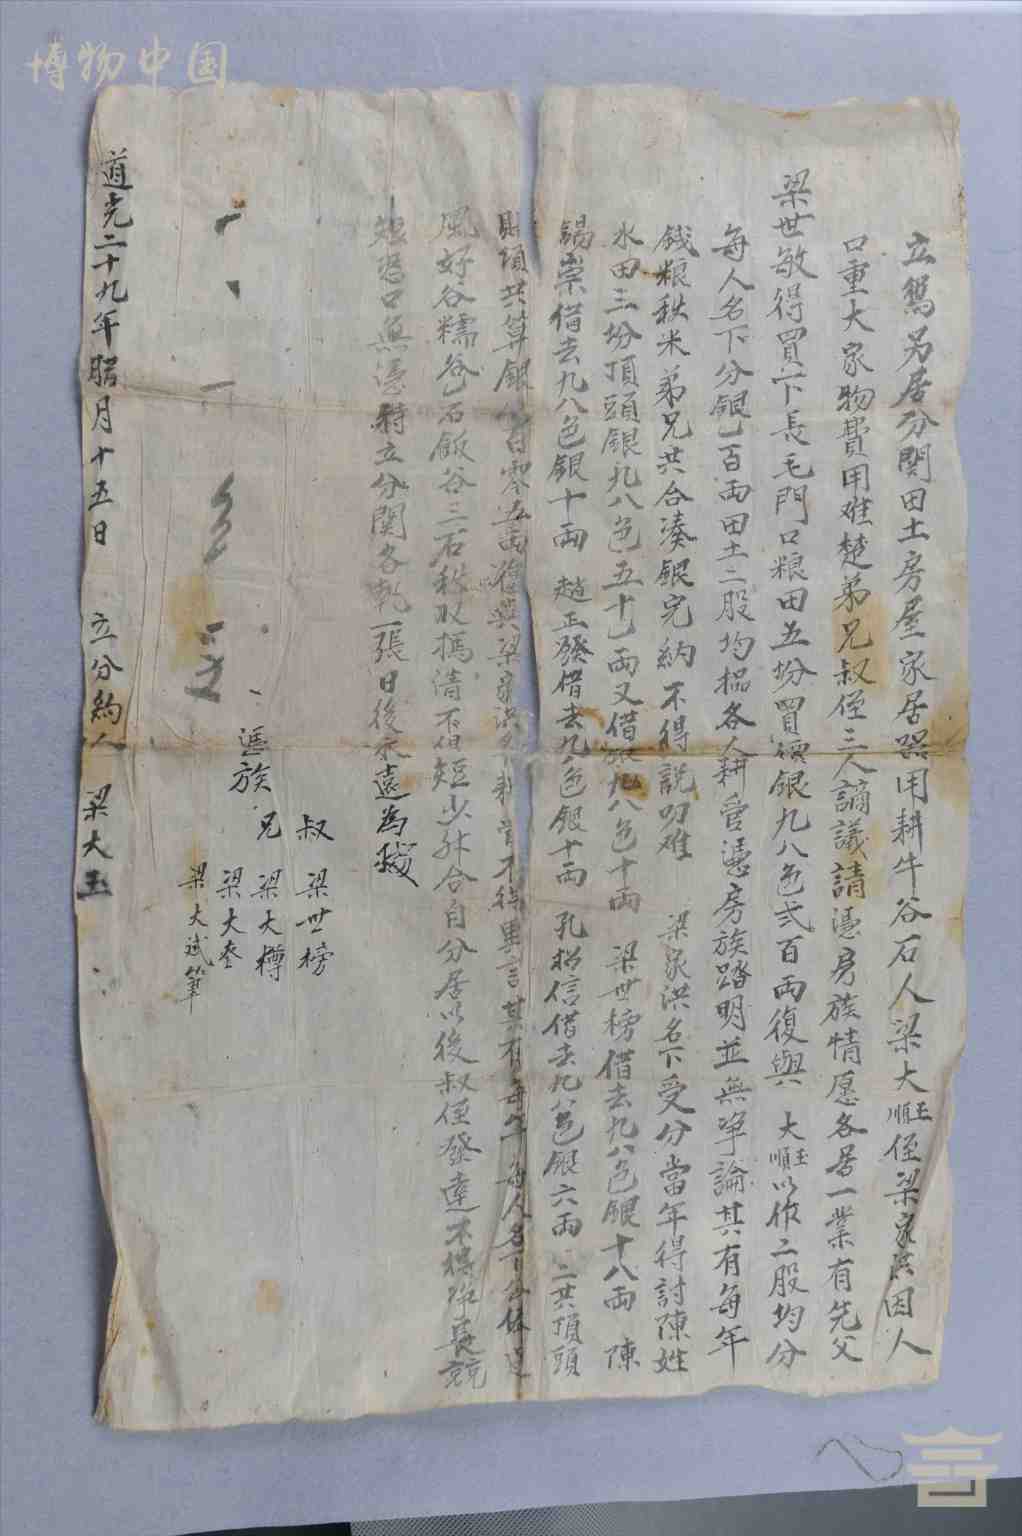 博物中国
立寫另居分関田土房屋家居器用耕牛谷石人梁大玉順侄梁家洪因人
口重大家物費用难楚弟兄叔侄三人謫議請憑房族情愿各居一業有先父
梁世敏得買下長毛門口粮田五坋買價銀九八色弍百両復與大玉順以作二股均分
每人名下分銀乚百両田土二股均摳各人耕管憑房族踏明並無爭論其有每年
錢粮秋米弟兄共合凑銀完納不得説叨难 梁家洪名下受分當年得討陳姓
水田三坋頂頭銀九八色五十乚両又借銀九八色十両 梁世榜借去九八色銀十八両 陳
錫崇借去九八色銀十両 趙正發借去九八色銀十両 孔招信借去九八色銀六両 二共頂頭
賬項共算銀 百零五両復與梁家洪 耕管不得重言其有每年每人名下
風好谷糯谷乚石飯谷三石秋收撝清不得短少於合自分居以後叔侄發達不得爭長競
短恐口無憑特立分関各執一張日後永遠為據
憑族 叔 梁世榜
兄 梁大樽
梁大奎
梁大斌筆
道光二十九年腊月十五日 立分約人 梁大玉